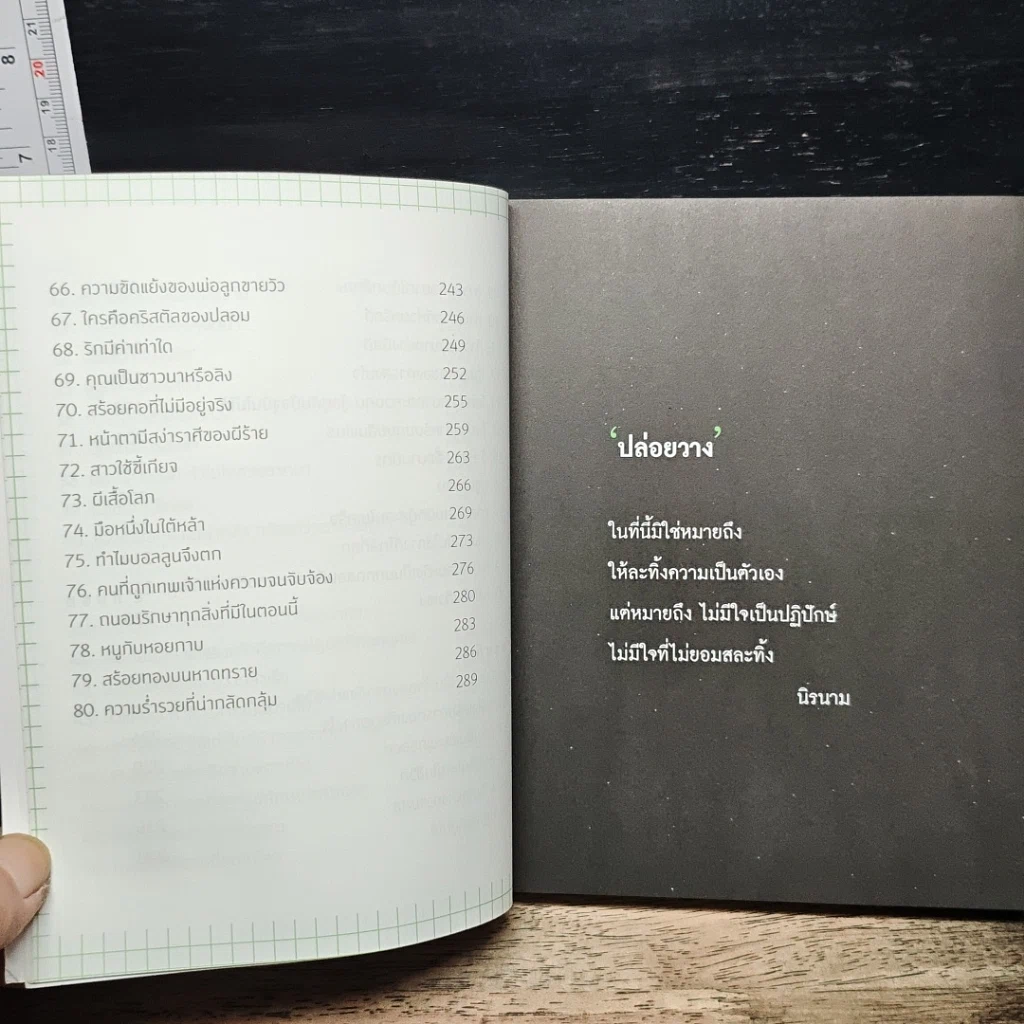 8
7
21
20
19
18
66. ความขัดแย้งของพ่อลูกขายวัว 243
67. ใครคือคริสตัลของปลอม 246
68. รักมีค่าเท่าใด 249
69. คุณเป็นชาวนาหรือลิง 252
70. สร้อยคอที่ไม่มีอยู่จริง 255
71. หน้าตามีสง่าราศีของผีร้าย 259
72. สาวใช้ขี้เกียจ 263
73. ผีเสื้อโลภ 266
74. มือหนึ่งในใต้หล้า 269
75. ทำไมบอลลูนจึงตก 273
76. คนที่ถูกเทพเจ้าแห่งความจนจับจ้อง 276
77. ถนอมรักษาทุกสิ่งที่มีในตอนนี้ 280
78. หนูกับหอยกาบ 283
79. สร้อยทองบนหาดทราย 286
80. ความร่ำรวยที่น่ากลัดกลุ้ม 289
‘ปล่อยวาง’
ในที่นี้มิใช่หมายถึง
ให้ละทิ้งความเป็นตัวเอง
แต่หมายถึง ไม่มีใจเป็นปฏิปักษ์
ไม่มีใจที่ไม่ยอมสละทิ้ง
นิรนาม